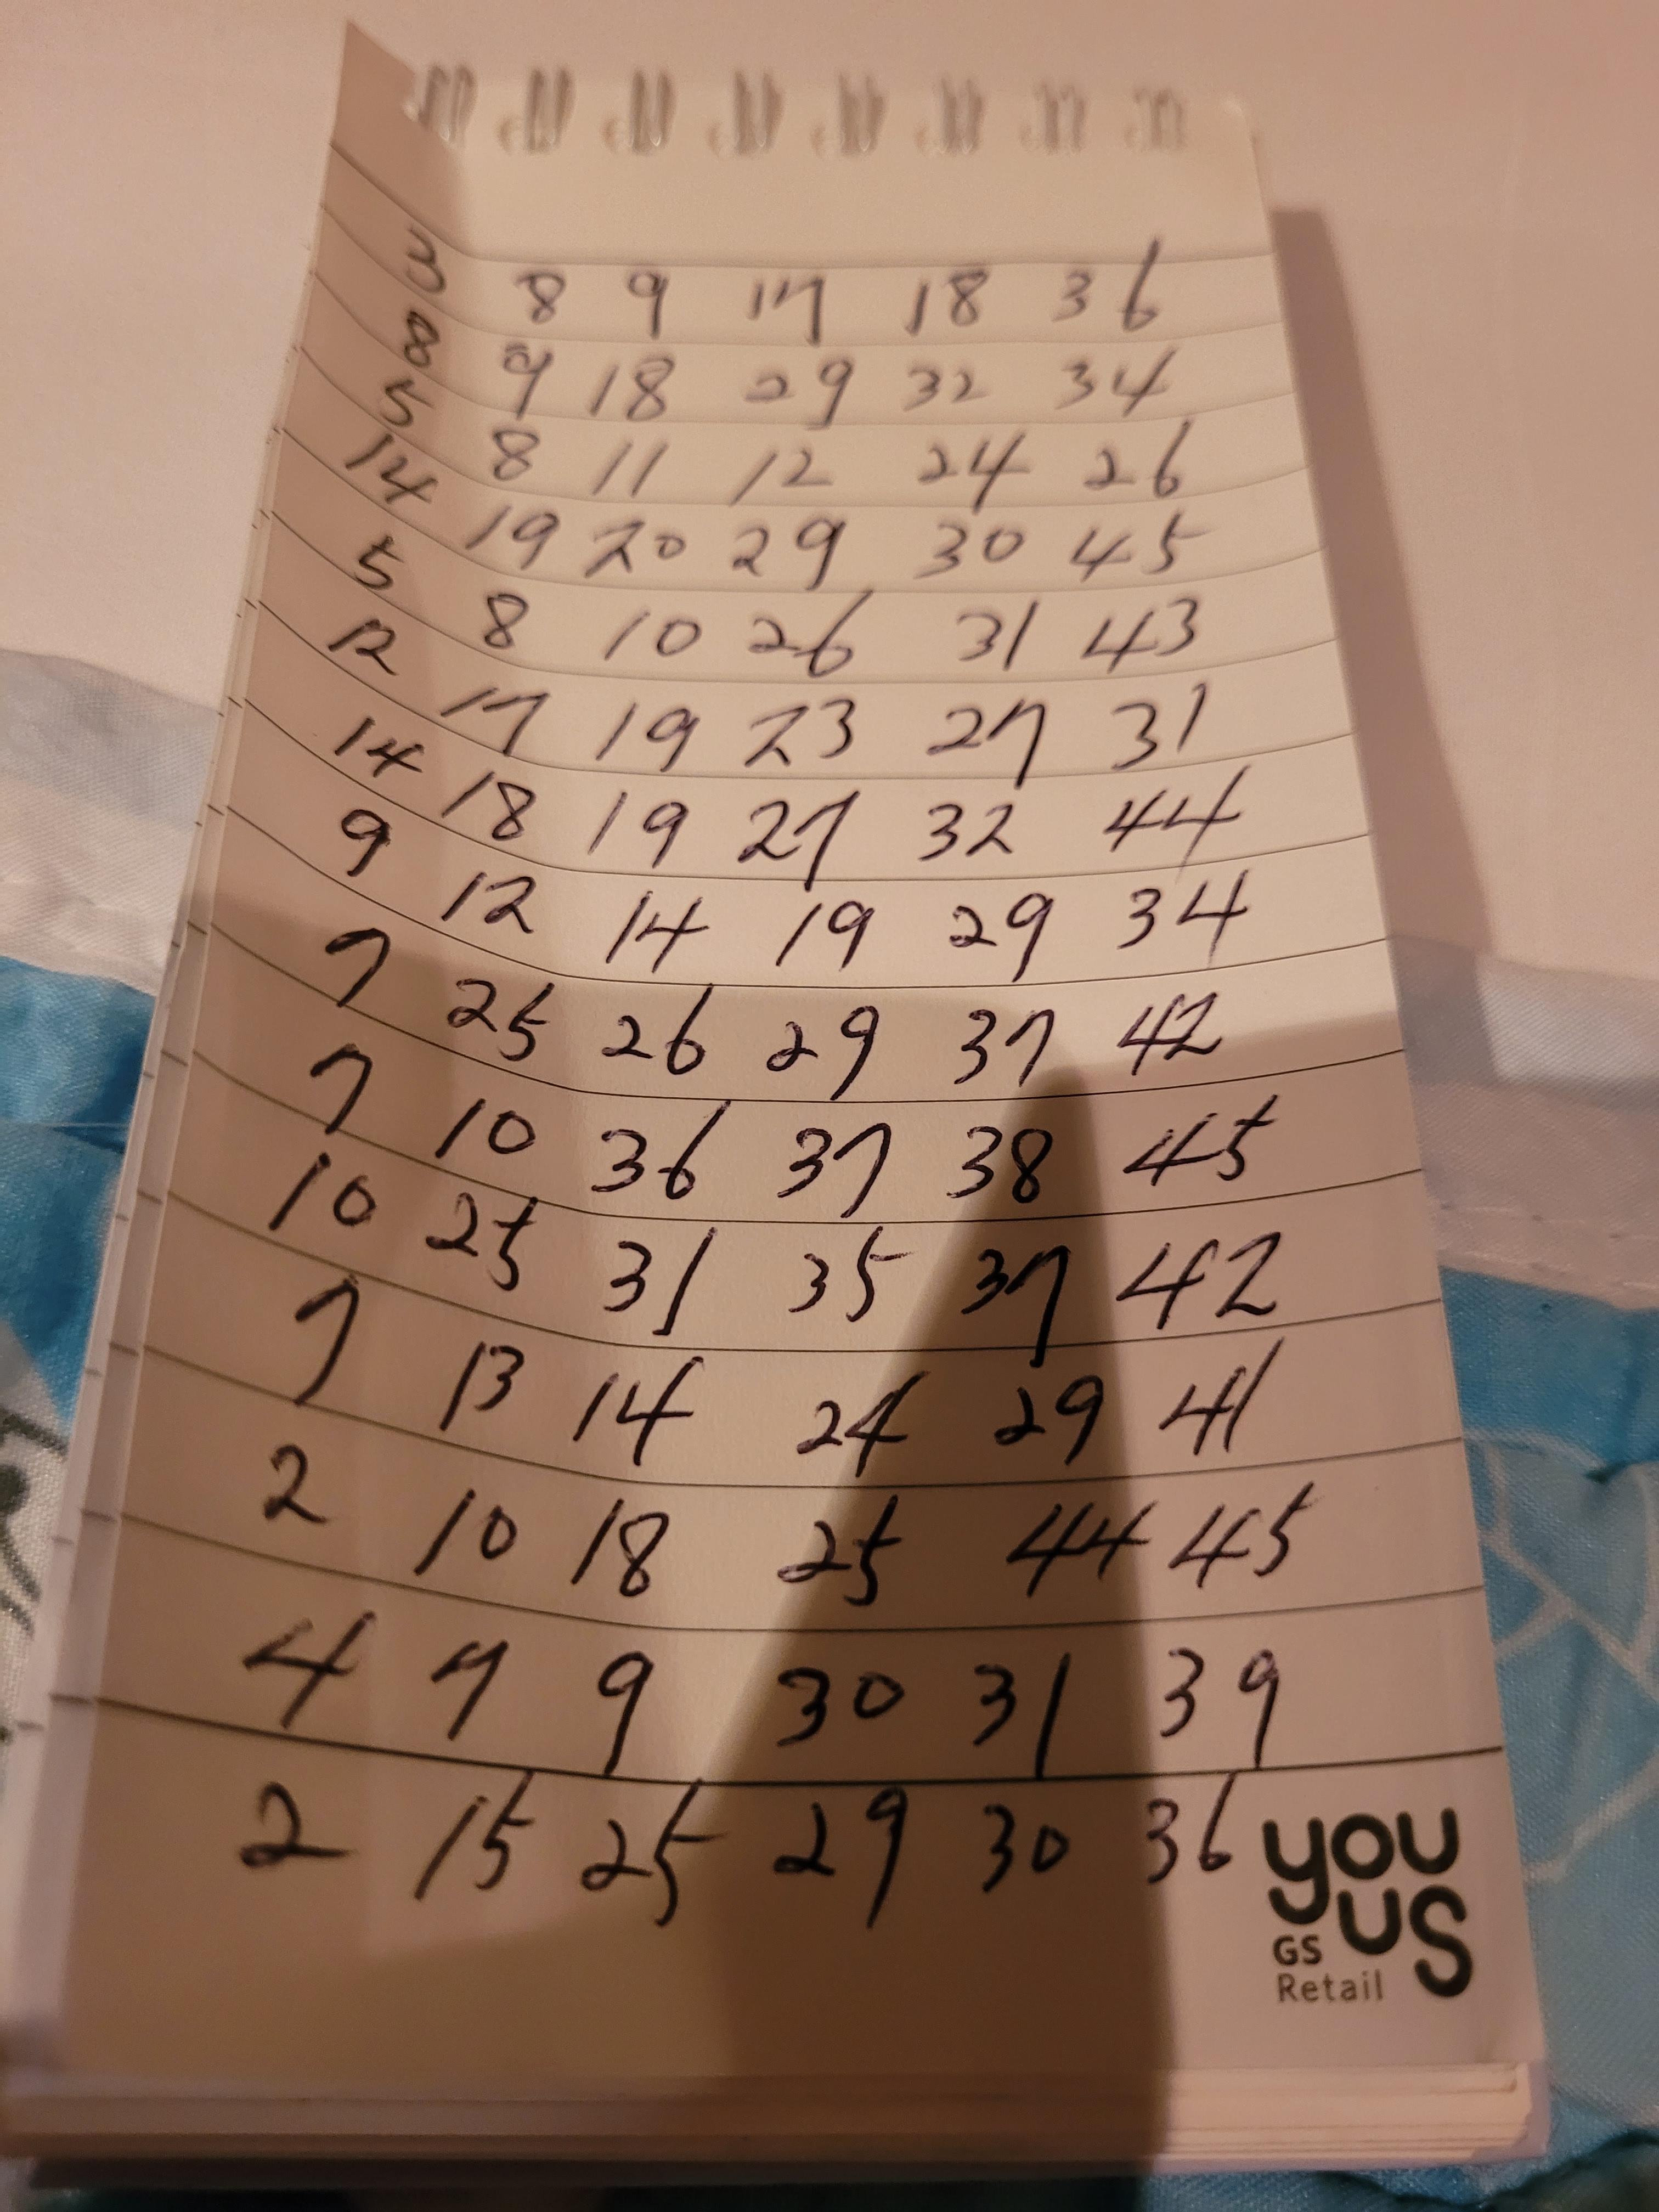 3 8 9 17 18 36
8 9 18 29 32 34
5 8 11 12 24 26
14 19 20 29 30 45
5 8 10 26 31 43
12 17 19 23 27 31
14 18 19 27 32 44
9 12 14 19 29 34
7 25 26 29 37 42
7 10 36 37 38 45
10 25 31 35 37 42
7 13 14 24 29 41
2 10 18 25 44 45
4 7 9 30 31 39
2 15 25 29 30 36
you
us
GS
Retail